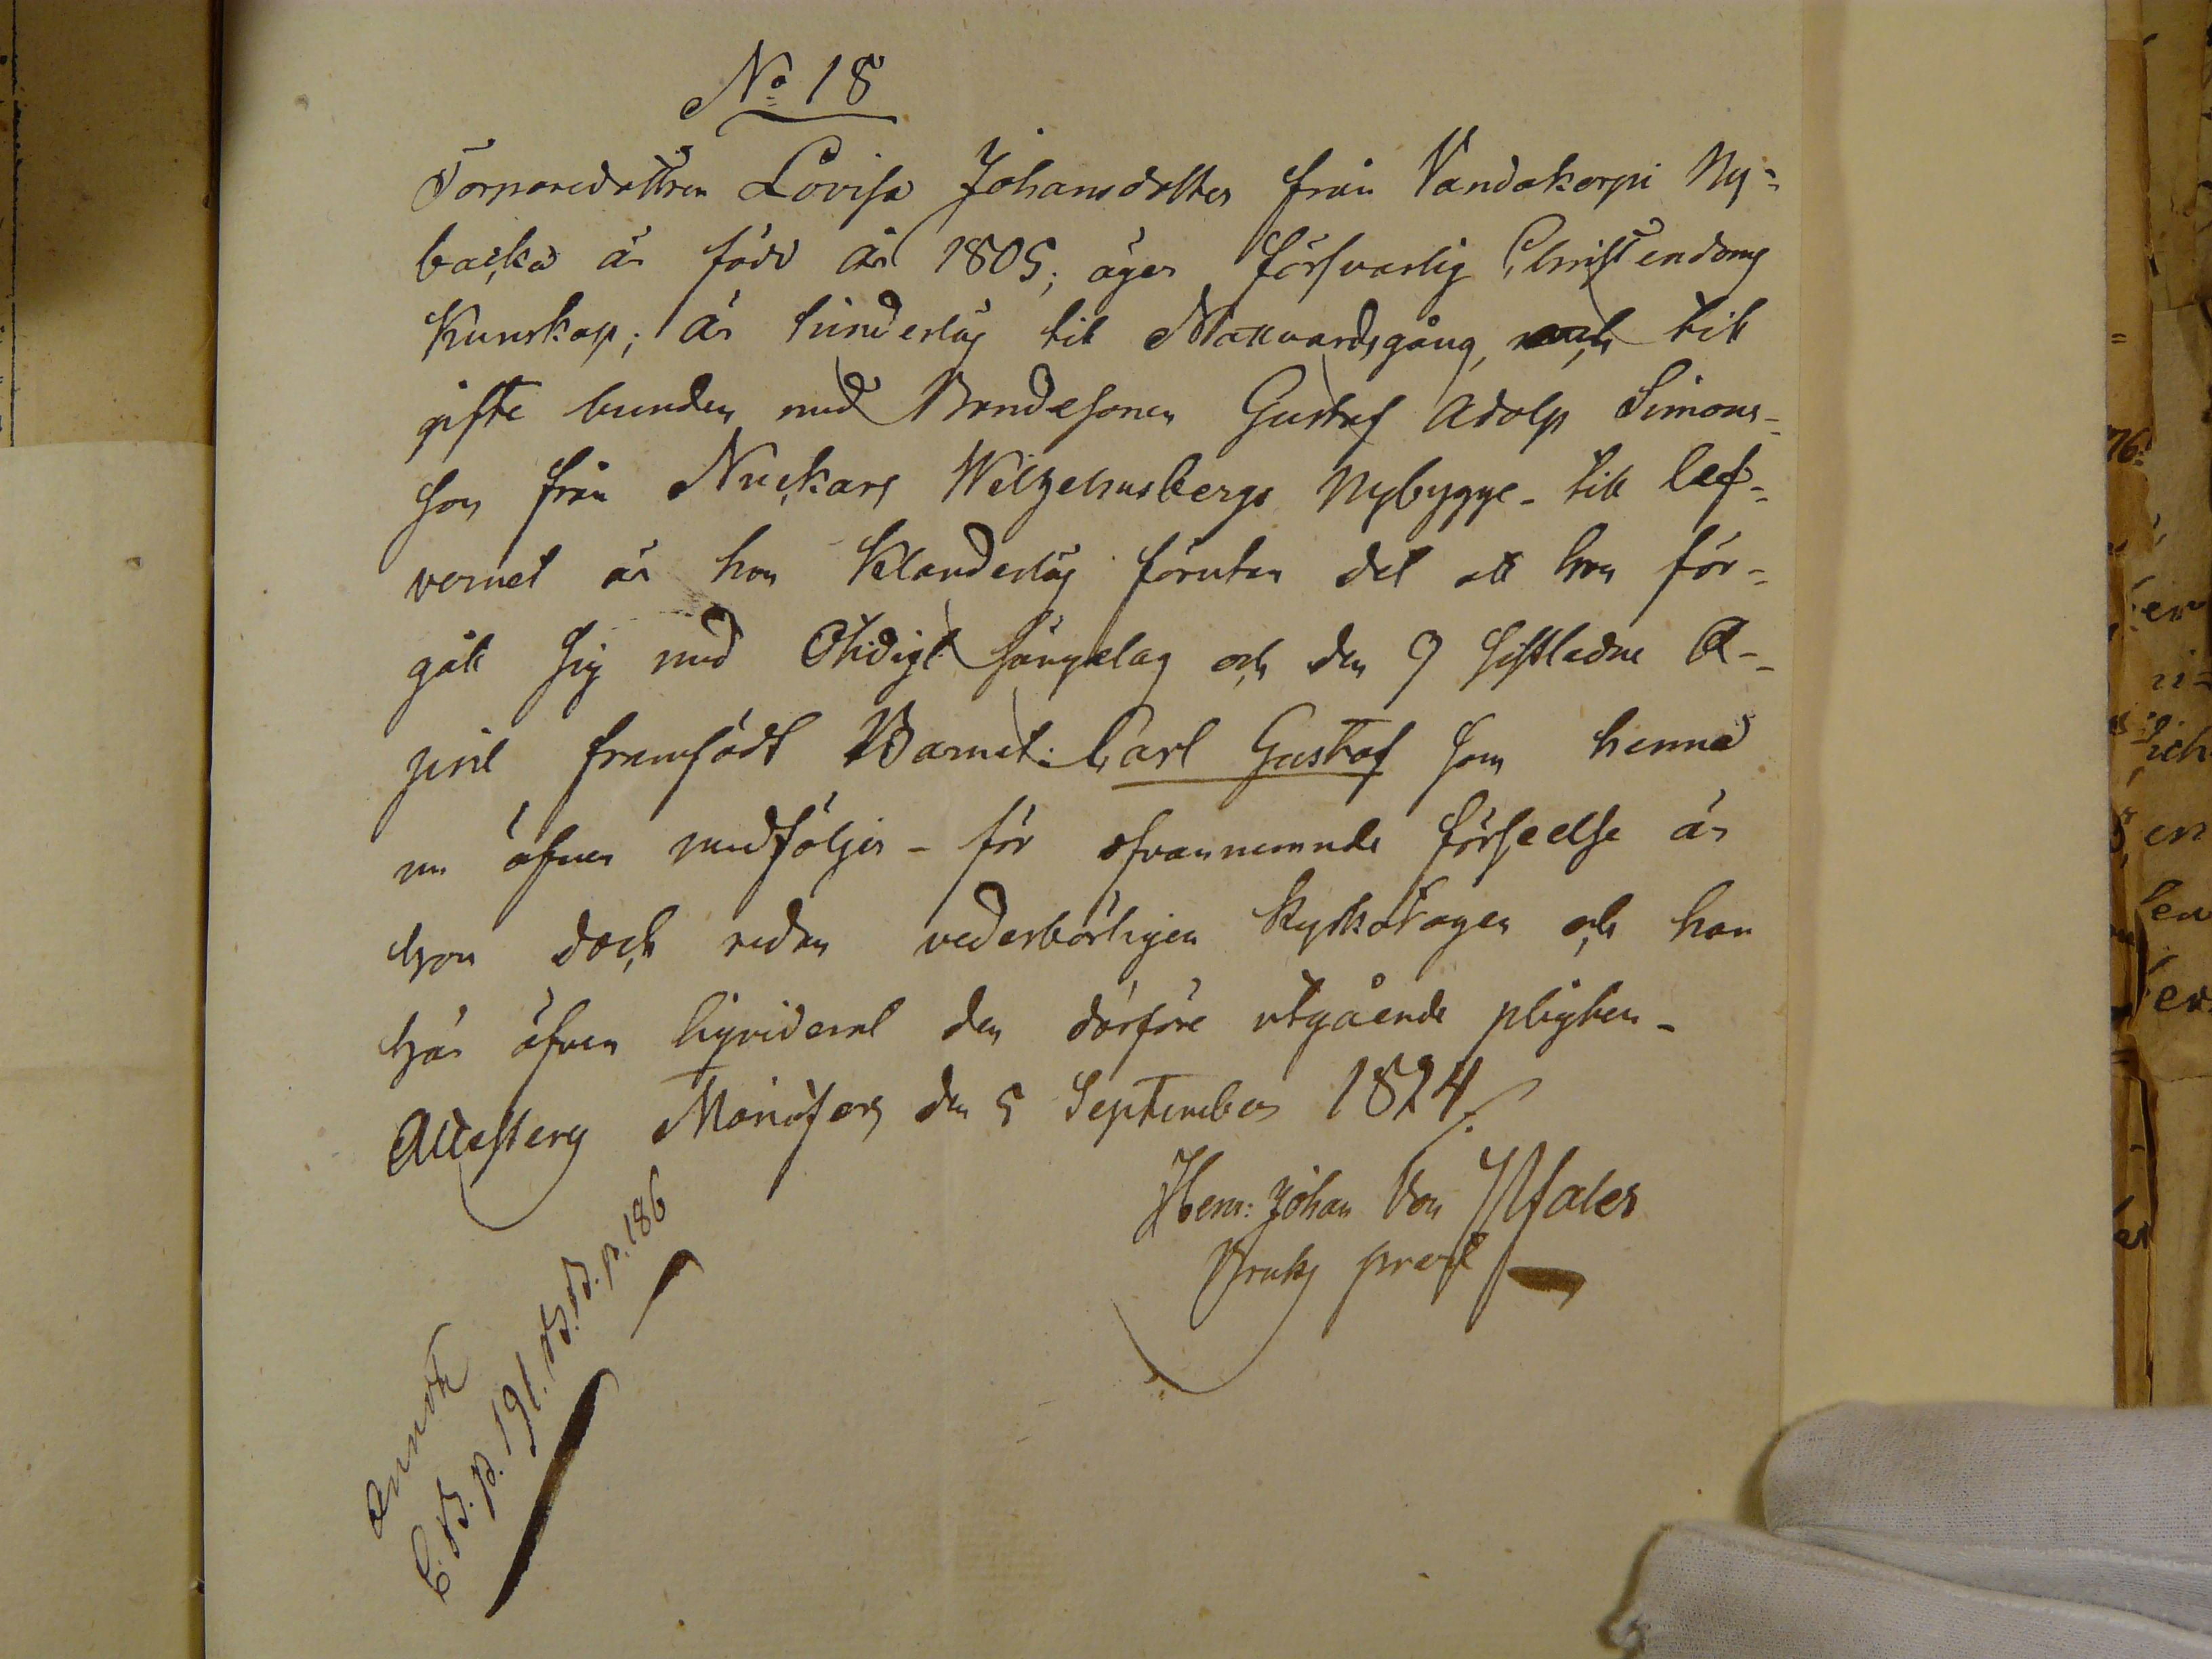 No 18
Torparedottren Lovisa Johansdotter från Vandakorpi Ny=
backa är född år 1805; äger försvarlig Christendoms
Kunskap; är hinderlös til Nattvardsgång, och till
gifte bunden med Bondesonen Gustaf Adolp Simons=
son från Nuckars Wilhelmsbergs Nybygge - till lef=
vernet är hon klanderlös förutan det att hon för=
gått sig med Otidigt sängelag och den 9 sistledne A=
pril framfödt Barnet: Carl Gustaf som henne
nu äfven medföljer - för ofvannemnde förseelse är
hon dock redan vederbörligen kyrkotagen och hon
här äfven liqviderat den därföre utgående pligten -
Attesterar Mariæfors den 5 September 1824.
Henr: Johan Von Pfaler
Bruks pred
Annot
C.B. p. 191. B. p. 186